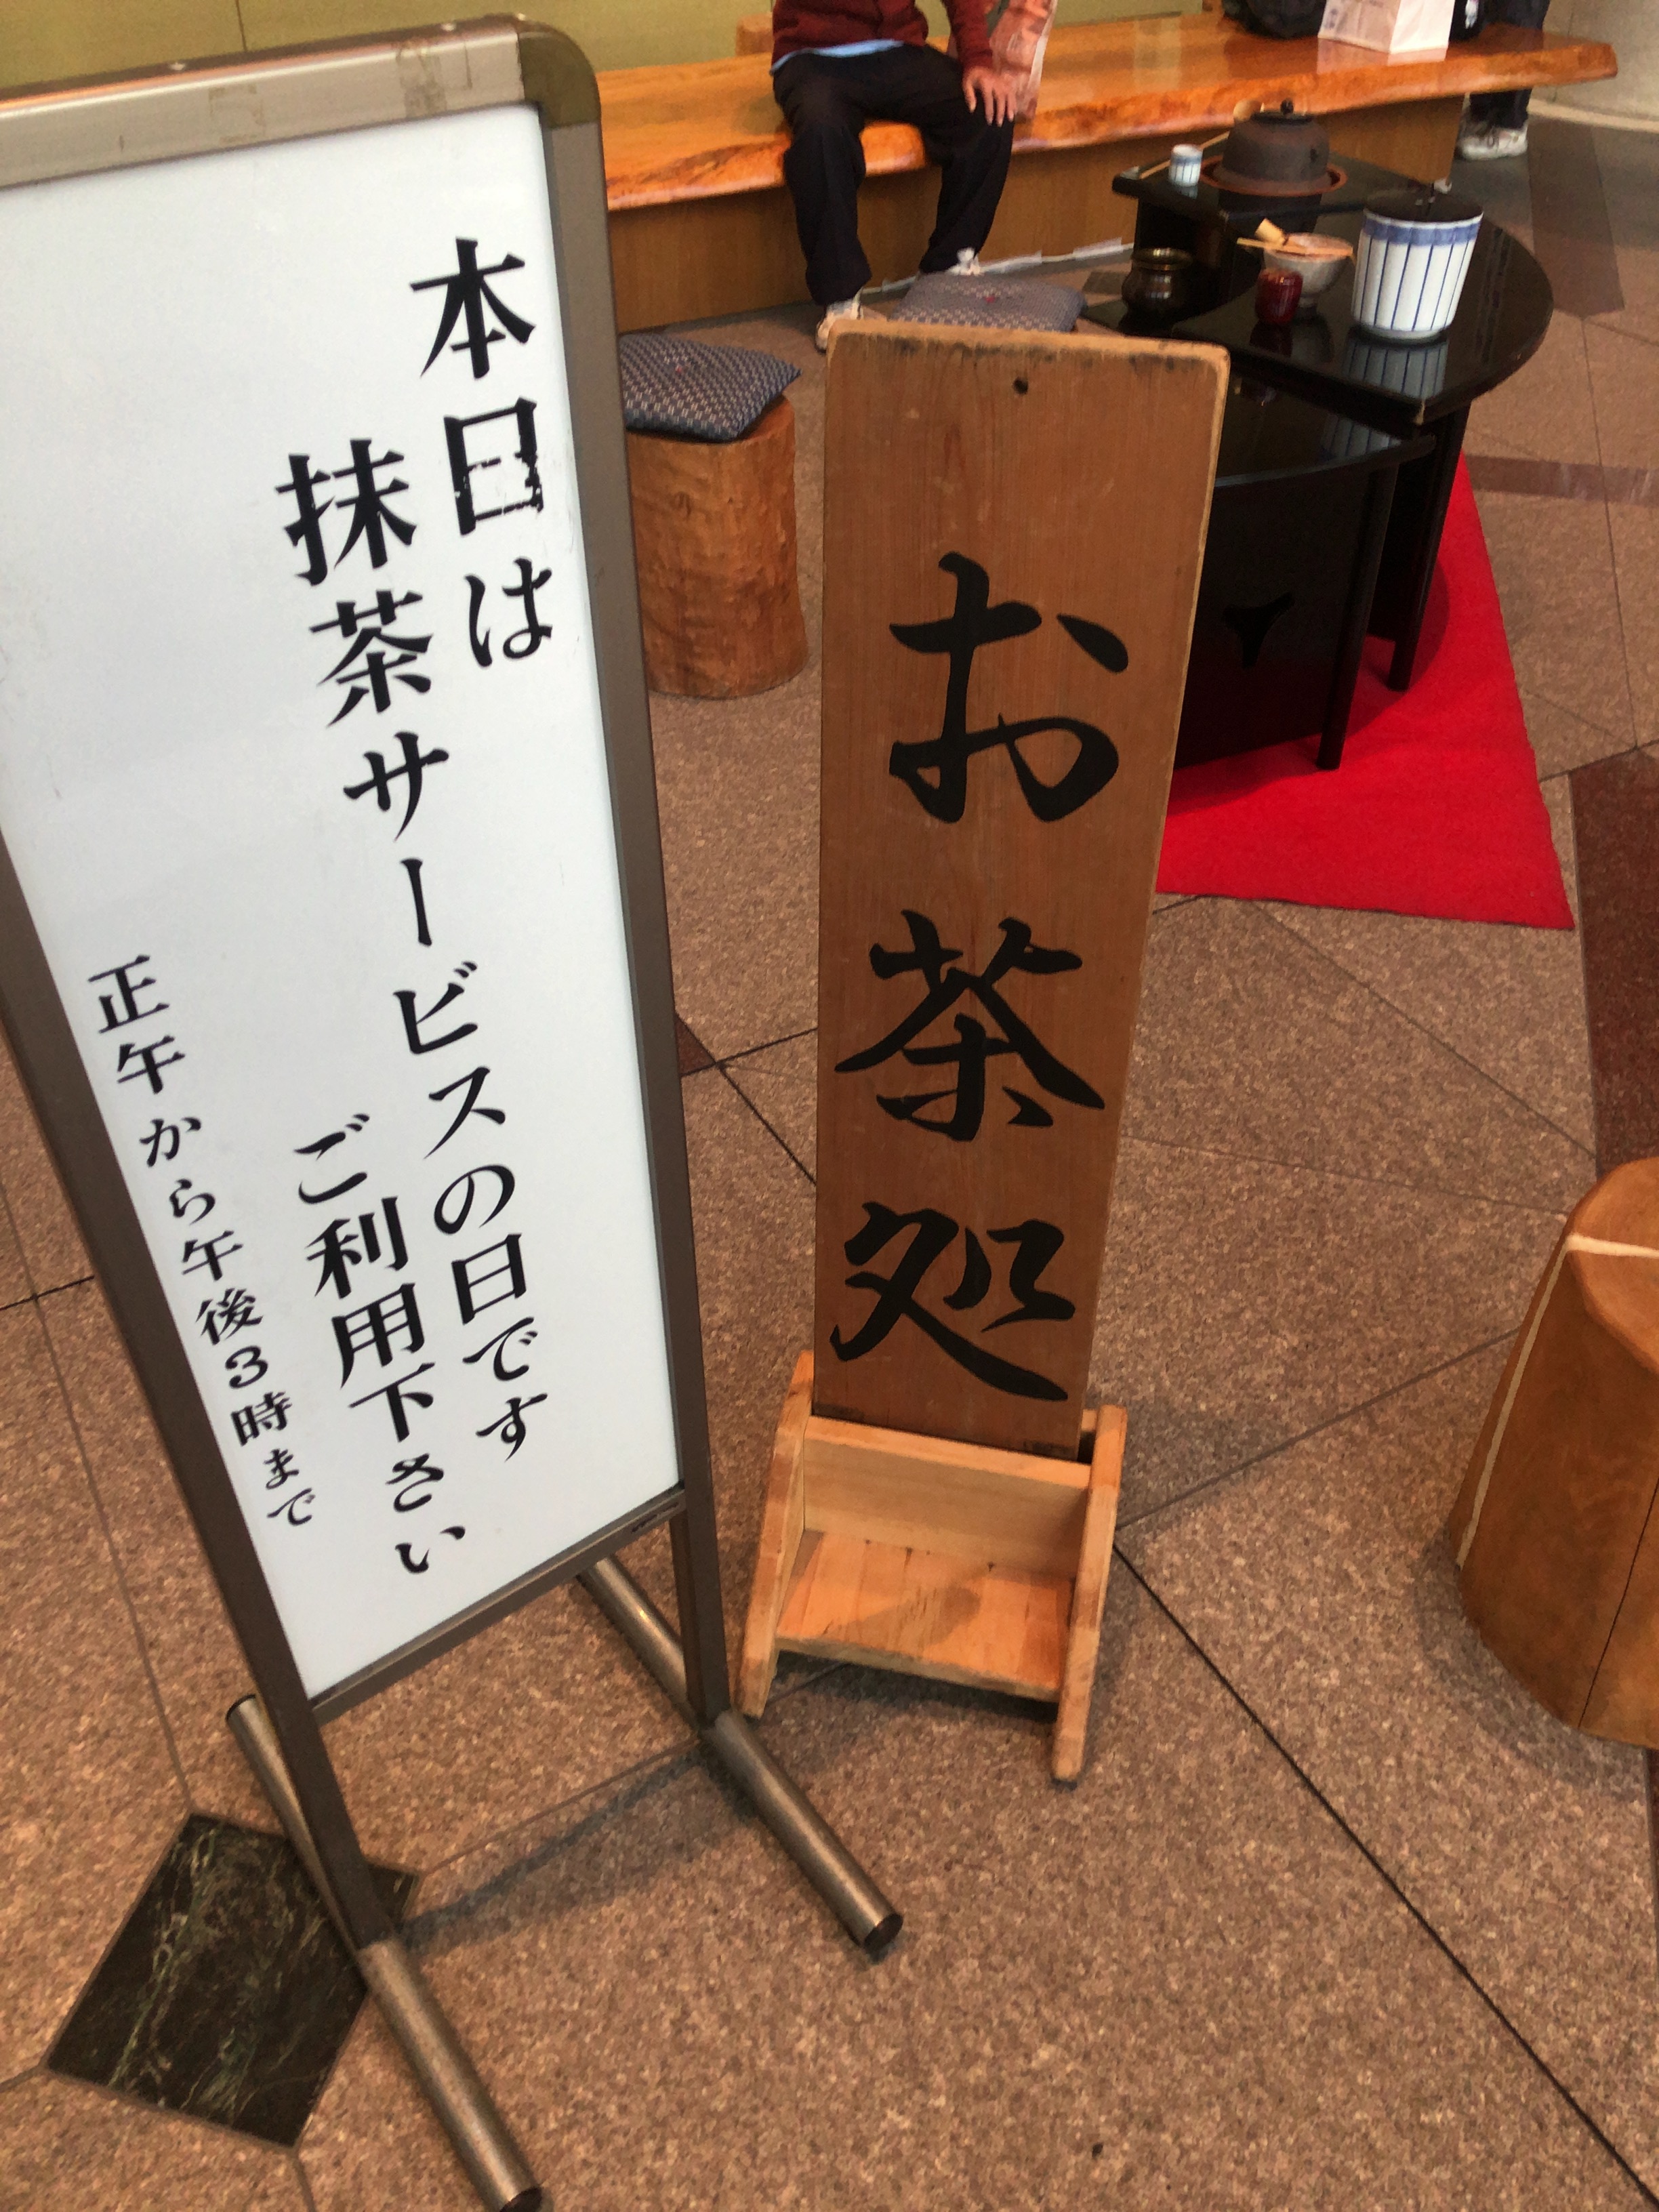 本日は
抹茶サービスの日です
ご利用下さい
正午から午後3時まで
お茶処